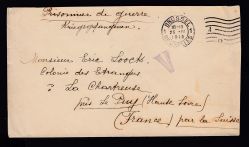 Prisonnier de guerre
Kriegsgefangenen
BRUSSEL
1916
BRUXELLES
V
Monsieur Eric Loock
Colonie des Etrangers
à La Chartreuse
près Le Puy (Haute Loire)
(France) par la Suisse